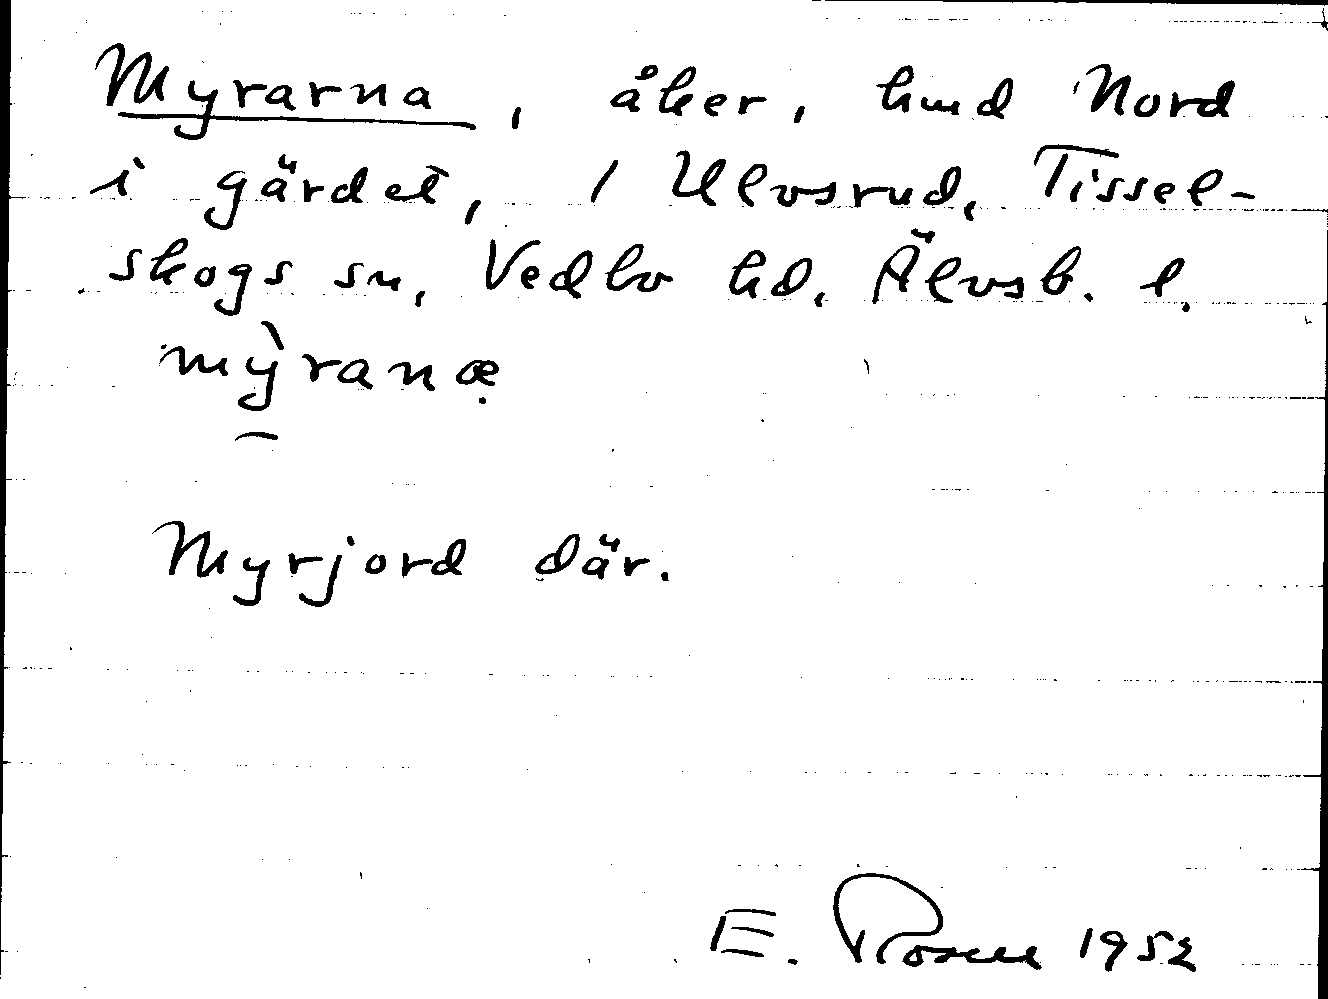 Myrarna, åker, hmd Nord
i gärdet, 1 Ulvsrud, Tissel-
skogs sn, Vedbo hd, Älvsb. l.
mỳranæ.
Myrjord där.
E. Rosell 1952